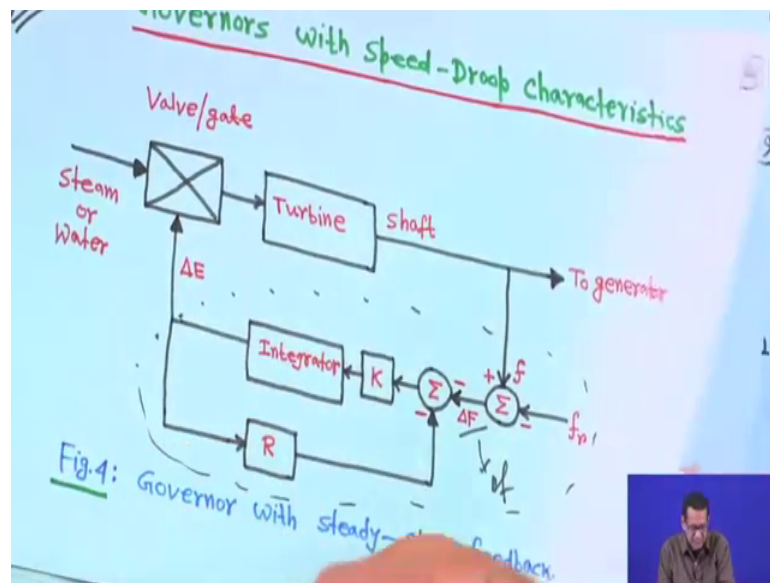 Governors with Speed-Droop Characteristics
Valve/gate
Steam
or
Water
Turbine
Shaft
To generator
ΔE
Integrator
K
Σ
-
-
ΔF
Σ
+
f
-
fr
R
Δf
Fig.4: Governor with steady- feedback.